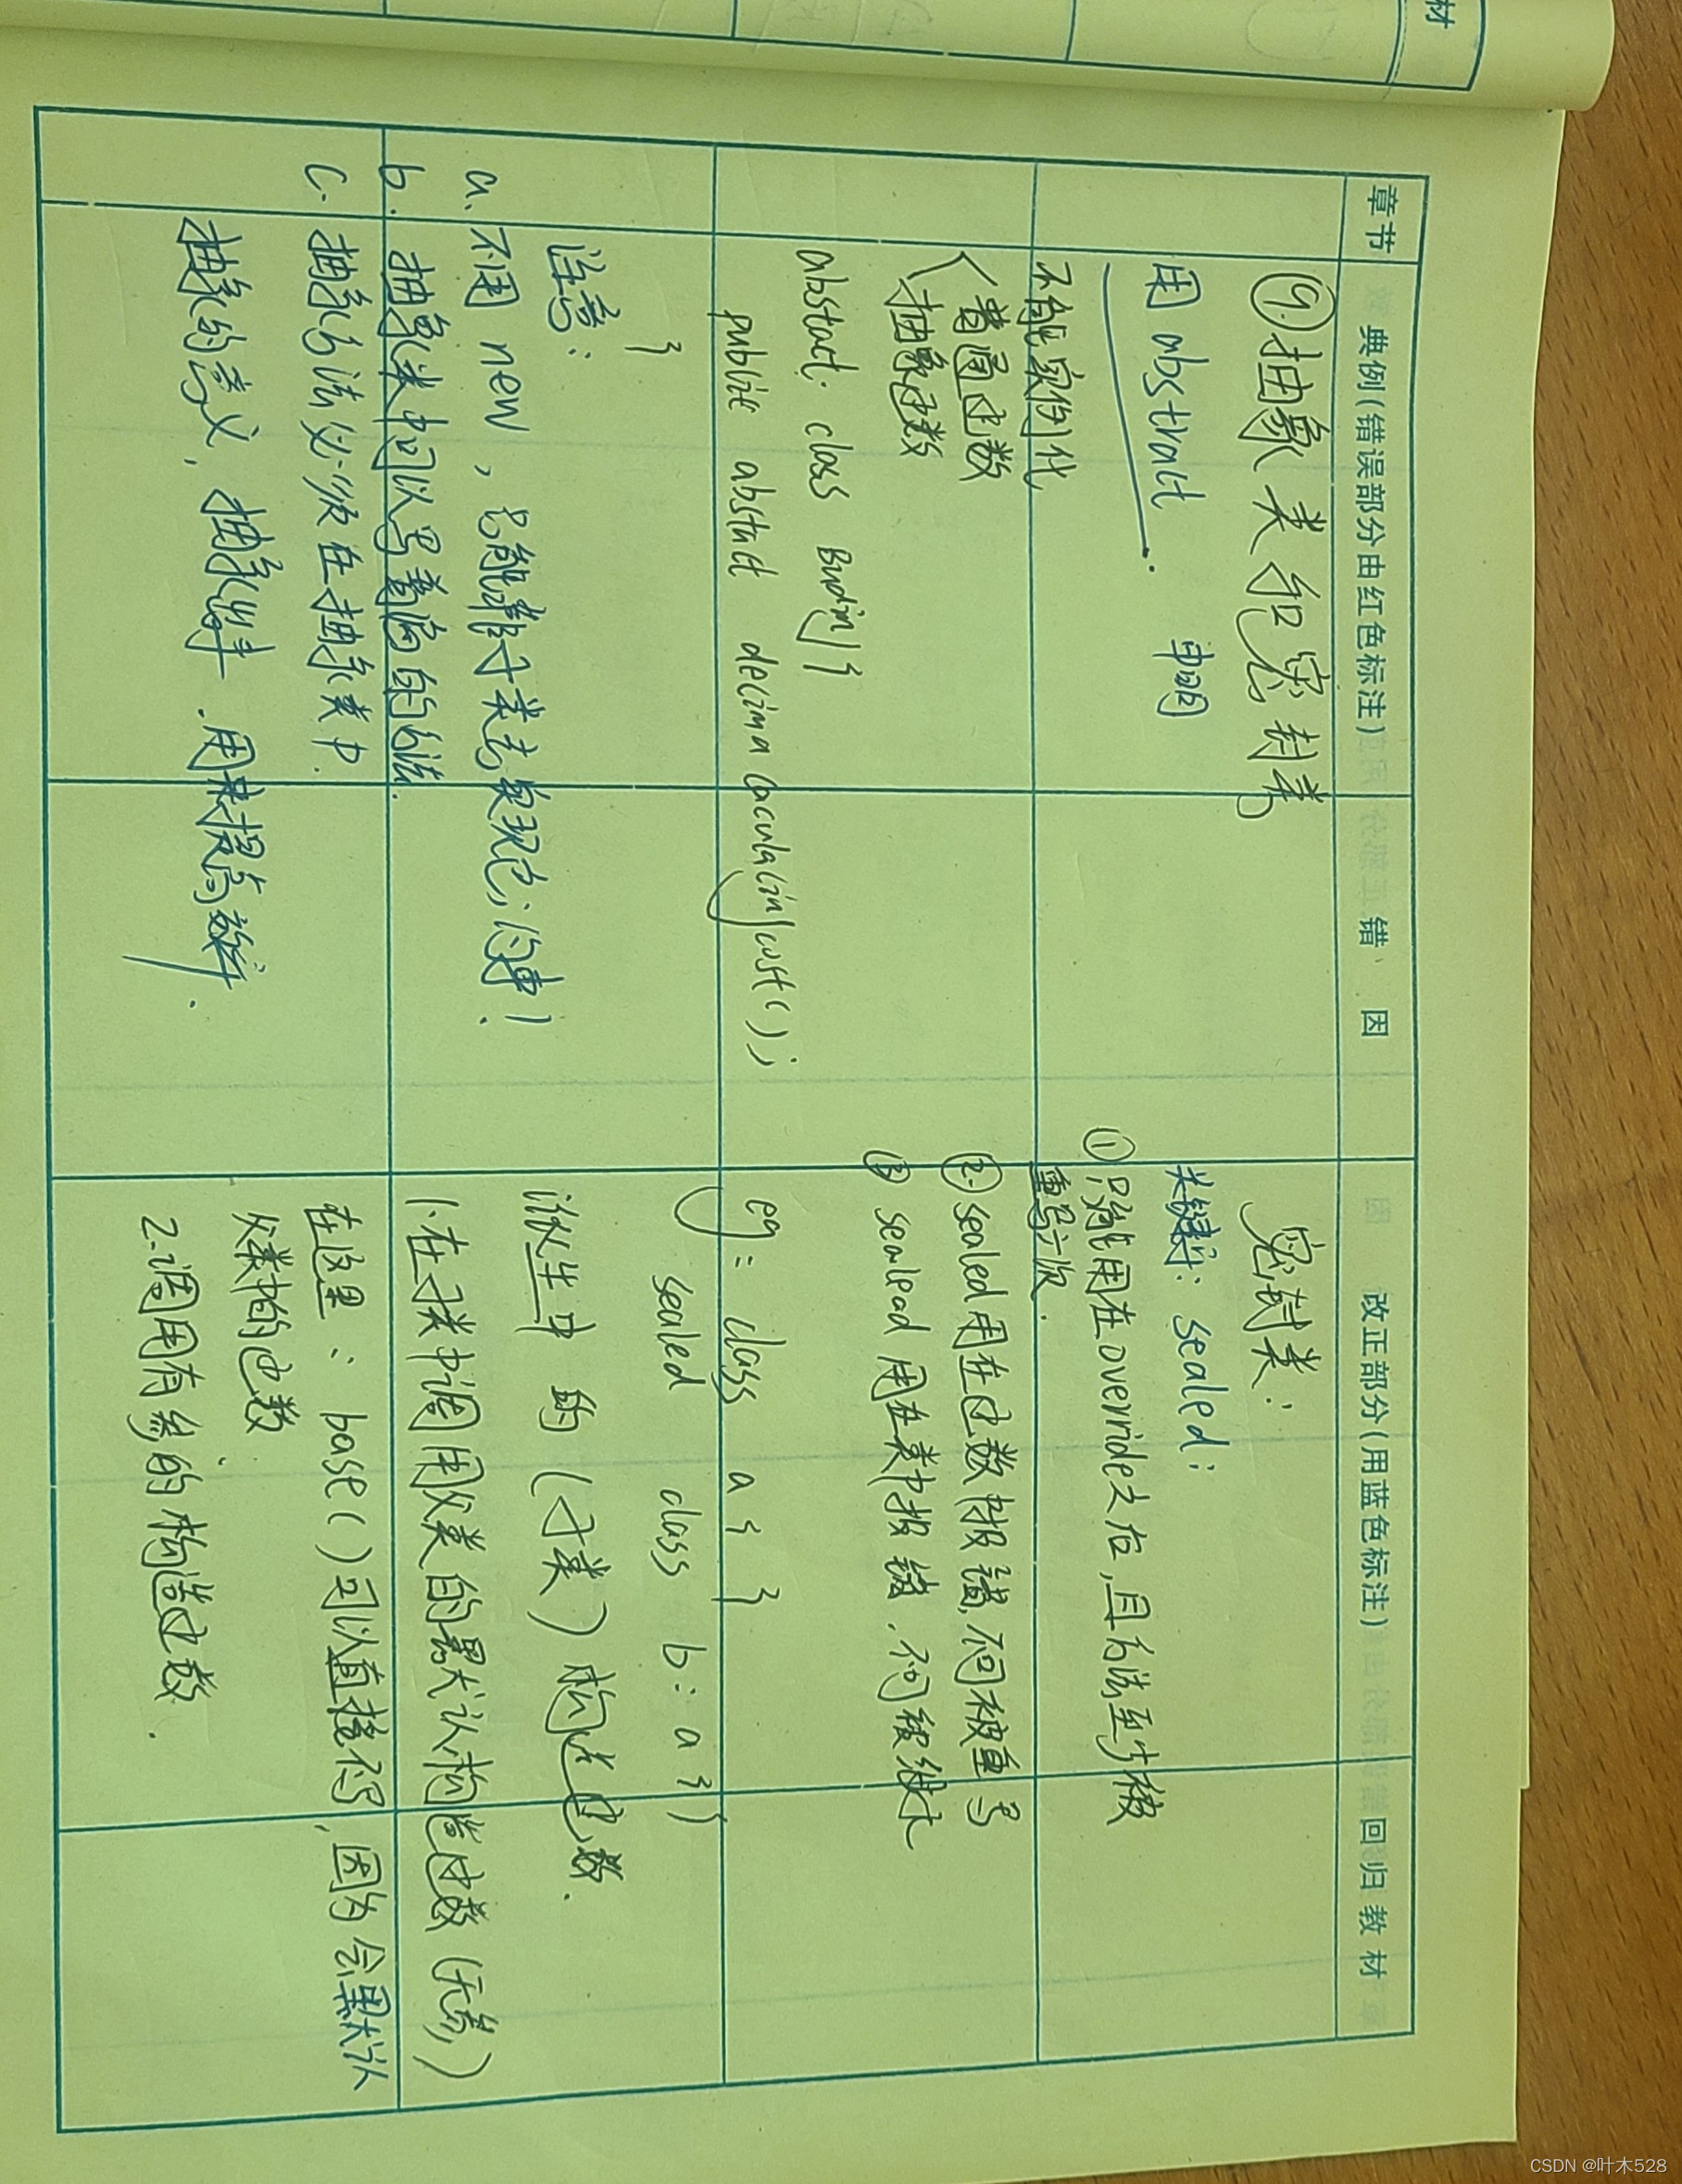 材
章节 典例(错误部分由红色标注) 错 因 改正部分(用蓝色标注) 回归教材
⑨抽象类和密封类
用 abstract. 申明
不能实例化
普通函数
抽象函数
abstact. class Bnding{
public abstact decima caculatingcust();
}
注意:
a. 不用 new, 只能靠子类去实现它;
b. 抽象类中可以写普通的方法.
c. 抽象方法必须在抽象类中.
抽象的意义, 用来提高效率.
密封类:
关键字: sealed;
① 只能用在override之后,且方法至少被
重写一次.
② sealed用在函数中报错,不可被重写
③ sealead 用在类中报错,不可被继承
eg: class a { }
sealed class b: a{}
派生中的(子类)构造函数.
1.在子类中调用父类的默认构造函数(无参)
在这里: base()可以直接不写,因为会默认
父类中的函数
2.调用有参的构造函数.
CSDN @叶木528